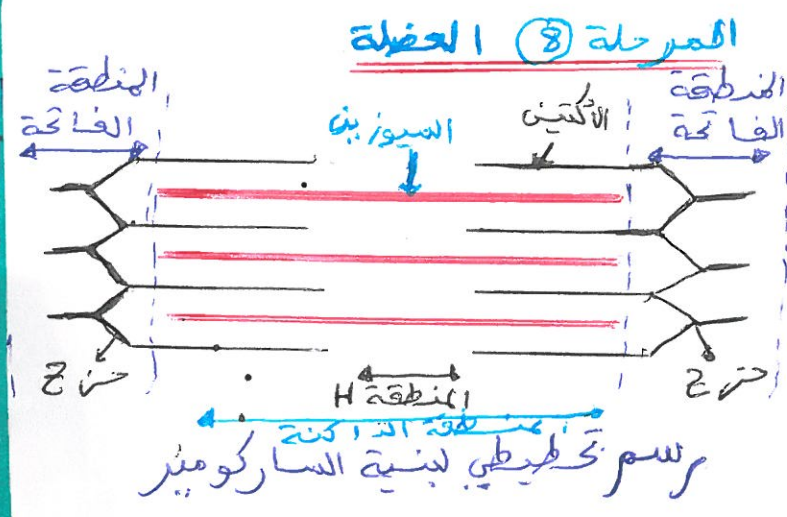 المرحلة ⑧ العضلة
المنطقة الفاتحة
الأكتين
الميوزين
المنطقة الفاتحة
حز Z
حز Z
المنطقة H
المنطقة الداكنة
رسم تخطيطي لبنية الساركومير